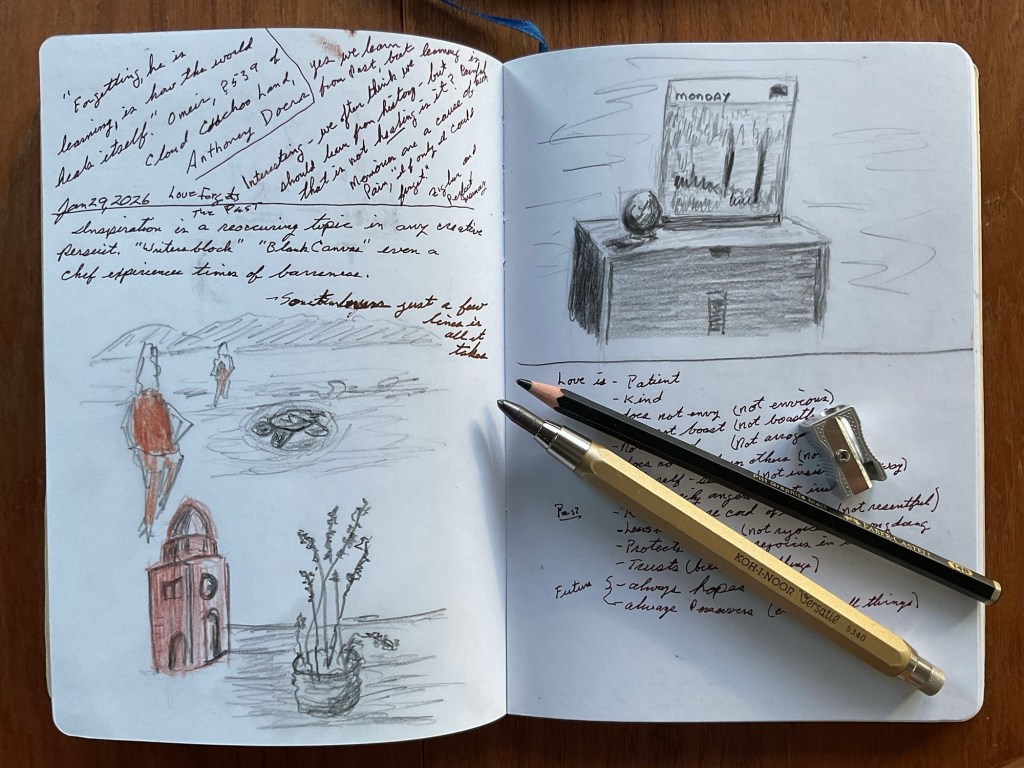 "Forgetting, he is
learning, is how the world
heals itself." Omeir, p539 of
Cloud Cuckoo Land,
Anthony Doerr
yes we learn
from Past but learning is
Interesting - we often think we
should learn from history - but
that is not healing is it? Being
Memories are a cause of such
Pain, "if only it could
forget".
Jan 29, 2026 Love Forgets
The Past
Inspiration is a reoccuring topic in any creative
persuit. "Writers block" "Blank Canvas" even a
chef experiences times of barreness.
- Sometimes just a few
lines is
all it
takes
MONDAY
Love is - Patient
- Kind
- does not envy (not envious)
not boast (not boastful
(Not arrog
others (no
self - (not insis way)
anger
Past - (not resentful)
(not rejoice wrongdoing
- Protects
- Trusts
Future - always hopes
- always Perseveres all things)
KOH-I-NOOR Versatil 5340
14B